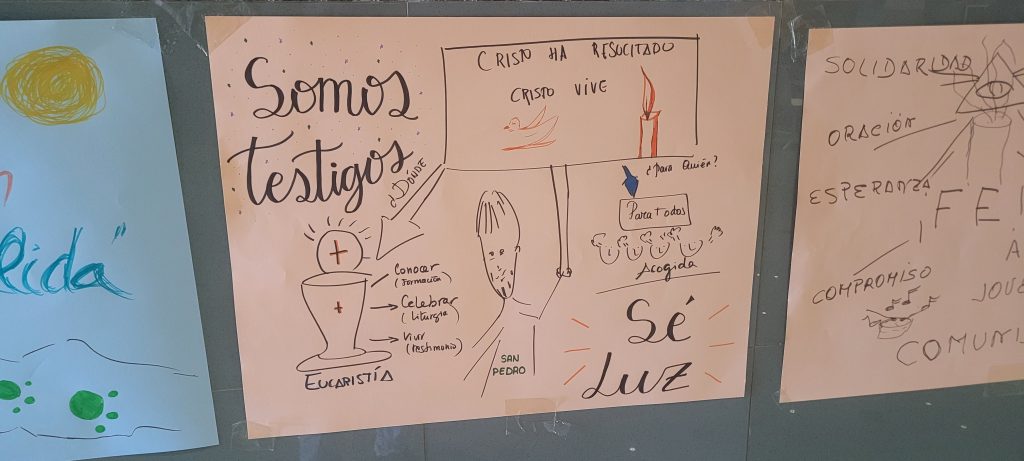 Rida"
Somos
Testigos
CRISTO HA RESUCITADO
CRISTO VIVE
¿DÓNDE
¿Para Quién?
Para todos
Acogida
Conocer
(Formación)
Celebrar
(Liturgia)
Vivir
(Testimonio)
EUCARISTÍA
SAN
PEDRO
Sé
Luz
SOLIDARIDAD
ORACIÓN
ESPERANZA
¡FE
COMPROMISO
A
JOVE
COMUNI